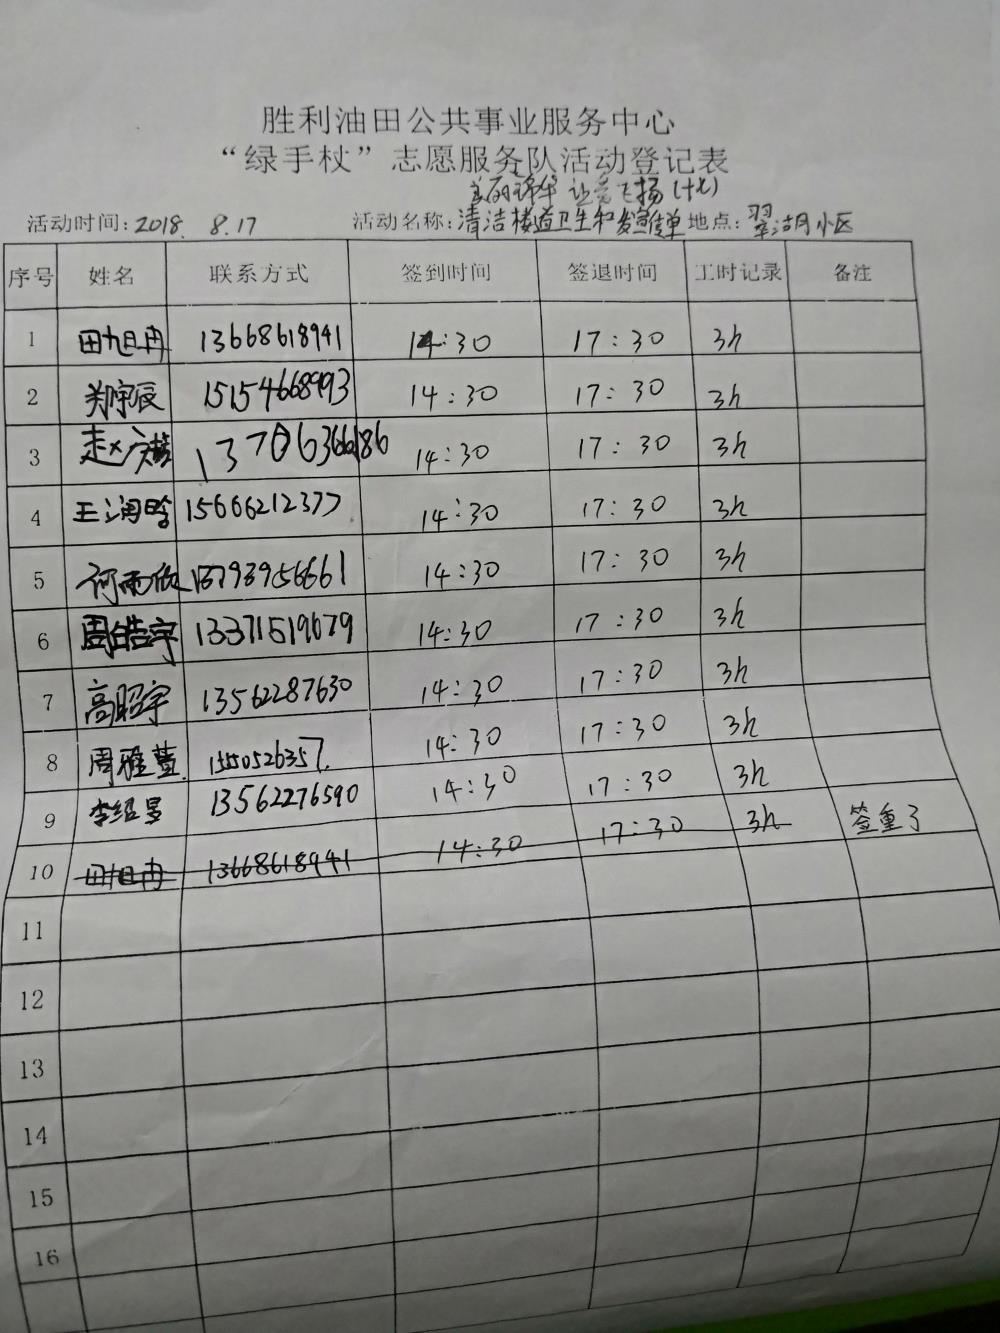 胜利油田公共事业服务中心
“绿手杖”志愿服务队活动登记表
美丽锦华 让爱飞扬(十七)
活动时间:2018. 8.17 活动名称:清洁楼道卫生和发宣传单 地点:翠湖小区
序号 姓名 联系方式 签到时间 签退时间 工时记录 备注
1 田旭冉 13668618941 14:30 17:30 3h
2 郑宇辰 15154668993 14:30 17:30 3h
3 赵 13706366186 14:30 17:30 3h
4 王润晗 15666212377 14:30 17:30 3h
5 何雨欣 14:30 17:30 3h
6 周皓宇 13371519679 14:30 17:30 3h
7 高昭宇 13562287630 14:30 17:30 3h
8 周雅萱 14:30 17:30 3h
9 李绍昱 13562276590 14:30 17:30 3h
10 田旭冉 13668618941 14:30 17:30 3h 签重了
11
12
13
14
15
16